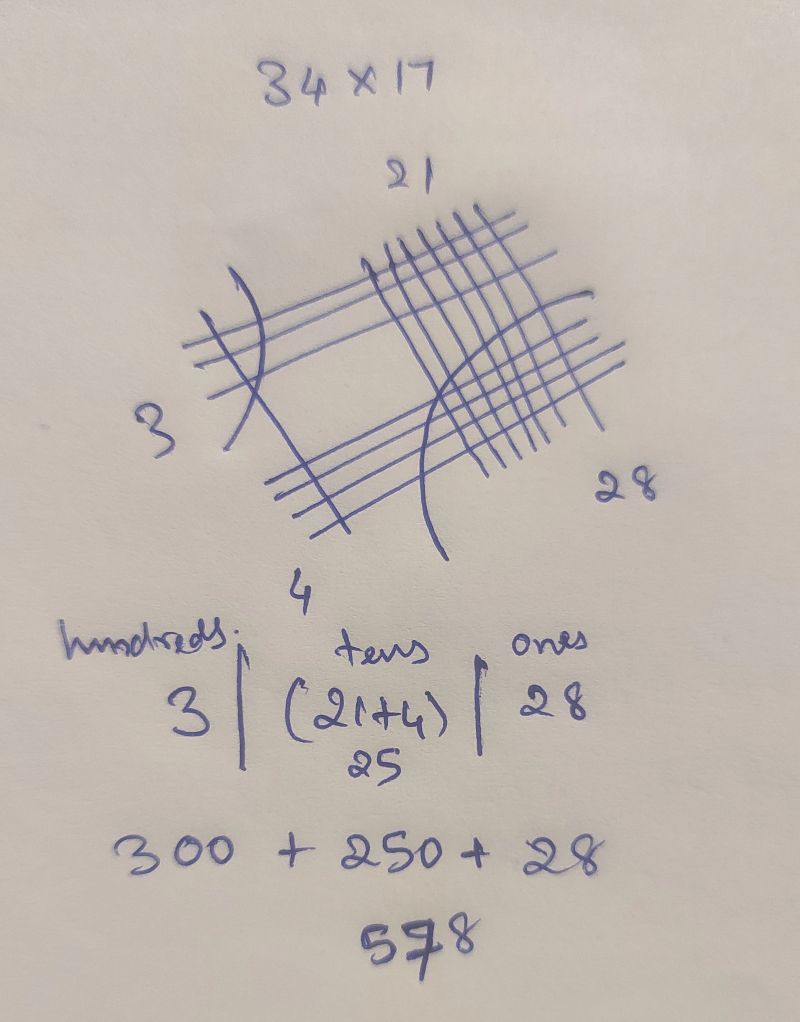 34 × 17
21
3
28
4
hundreds. tens ones
3 | (21+4) | 28
25
300 + 250 + 28
578